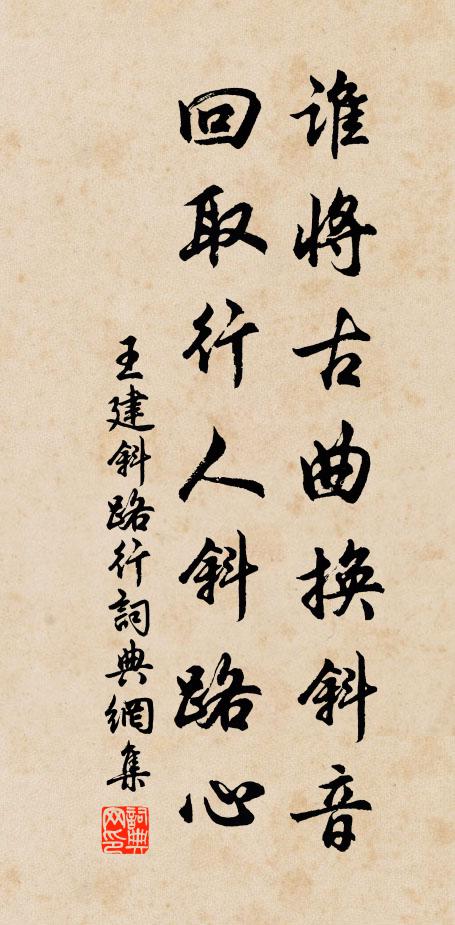 谁将古曲换斜音
回取行人斜路心
王建斜路行詞典網集
詞典网印